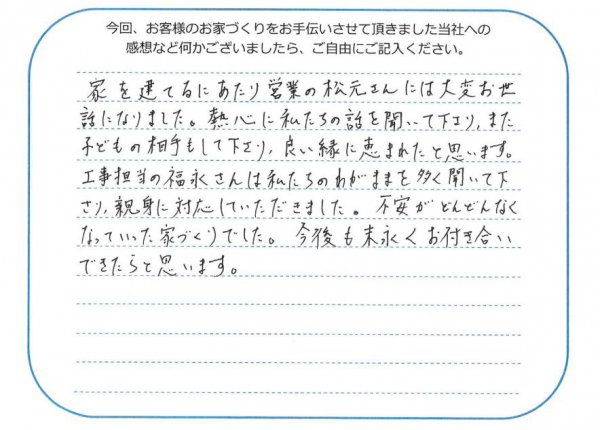 今回、お客様のお家づくりをお手伝いさせて頂きました当社への
感想など何かございましたら、ご自由にご記入ください。
家を建てるにあたり営業の松元さんには大変お世
話になりました。熱心に私たちの話を聞いて下さり、また
子どもの相手もして下さり、良い縁に恵まれたと思います。
工事担当の福永さんは私たちのわがままを多く聞いて下
さり、親身に対応していただきました。不安がどんどんなく
なっていった家づくりでした。今後も末永くお付き合い
できたらと思います。